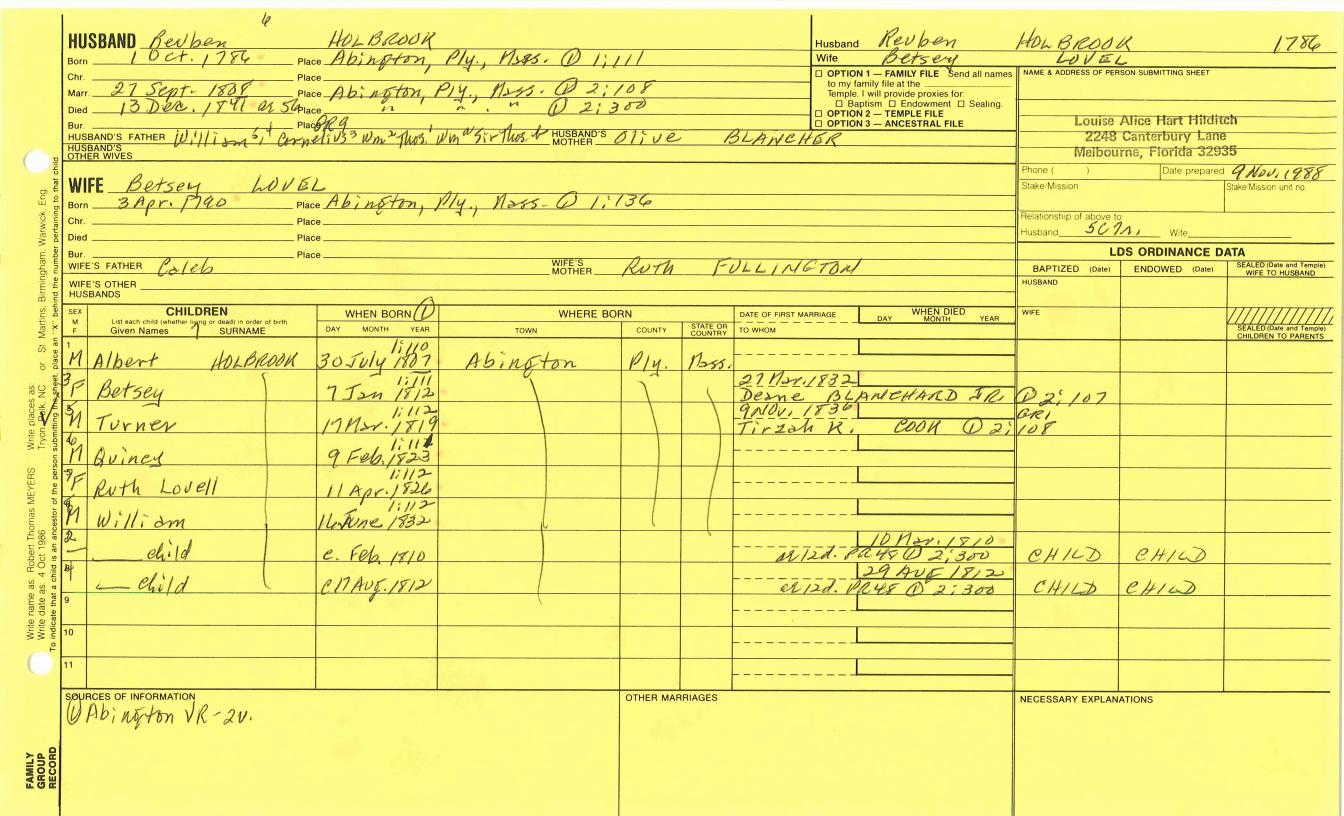 6
HUSBAND Reuben HOLBROOK
Born 1 Oct. 1786 Place Abington, Ply., Mass. ① 1:111
Chr. Place
Marr. 27 Sept. 1808 Place Abington, Ply., Mass. ① 2:108
Died 13 Dec. 1841 or 56 Place " " " ① 2:300
Bur. Place PR9
HUSBAND'S FATHER William Cornelius³ Wm² Thos.¹ Wm Sir Thos. HUSBAND'S MOTHER Olive BLANCHER
HUSBAND'S OTHER WIVES
Husband Reuben HOLBROOK 1786
Wife Betsey LOVEL
☐ OPTION 1 — FAMILY FILE Send all names
to my family file at the
Temple. I will provide proxies for:
☐ Baptism ☐ Endowment ☐ Sealing.
☐ OPTION 2 — TEMPLE FILE
☐ OPTION 3 — ANCESTRAL FILE
NAME & ADDRESS OF PERSON SUBMITTING SHEET
Louise Alice Hart Hilditch
2248 Canterbury Lane
Melbourne, Florida 32935
Phone ( ) Date prepared 9 Nov. 1988
Stake/Mission Stake/Mission unit no.
Relationship of above to
Husband Wife
WIFE Betsey LOVEL
Born 3 Apr. 1790 Place Abington, Ply., Mass. ① 1:136
Chr. Place
Died Place
Bur. Place
WIFE'S FATHER Caleb WIFE'S MOTHER Ruth FULLINGTON
WIFE'S OTHER HUSBANDS
LDS ORDINANCE DATA
BAPTIZED (Date) ENDOWED (Date) SEALED (Date and Temple) WIFE TO HUSBAND
HUSBAND
WIFE
SEALED (Date and Temple) CHILDREN TO PARENTS
SEX M F CHILDREN WHEN BORN ① WHERE BORN DATE OF FIRST MARRIAGE WHEN DIED
List each child (whether living or dead) in order of birth
Given Names SURNAME DAY MONTH YEAR TOWN COUNTY STATE OR COUNTRY TO WHOM DAY MONTH YEAR
1 1:110
M Albert HOLBROOK 30 July 1807 Abington Ply. Mass.
3 1:111 27 Mar. 1832
F Betsey 7 Jan 1812 Deane BLANCHARD JR. ① 2:107
5 1:112 9 Nov. 1836 GR1
M Turner 17 Mar. 1819 Tirzah R. COOK ① 2:108
6 1:111
M Quincy 9 Feb. 1823
7 1:112
F Ruth Lovell 11 Apr. 1826
1:112
M William 16 June 1832
2 10 Mar. 1810
— child c. Feb. 1810 a/12d. PR48 ① 2:300 CHILD CHILD
29 AUG 1812
— child c 17 Aug. 1812 a/12d. PR48 ① 2:300 CHILD CHILD
9
10
11
SOURCES OF INFORMATION
① Abington VR-2v.
OTHER MARRIAGES
NECESSARY EXPLANATIONS
Write name as: Robert Thomas MEYERS Write places as: Tryon, Polk, NC or St. Martins, Birmingham, Warwick, Eng.
Write date as: 4 Oct 1986
To indicate that a child is an ancestor of the person submitting the sheet, place an "X" behind the number pertaining to that child
FAMILY
GROUP
RECORD